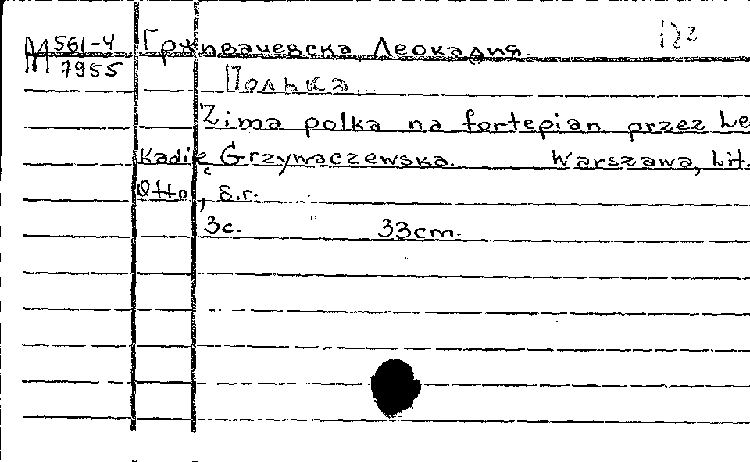 М 561-4 Грживачевска Леокадия.
7955
Полька
Zima polka na fortepian przez Le
Kadię Grzywaczewska. Warszawa, Lit.
Otto, s.r.
3c. 33cm.